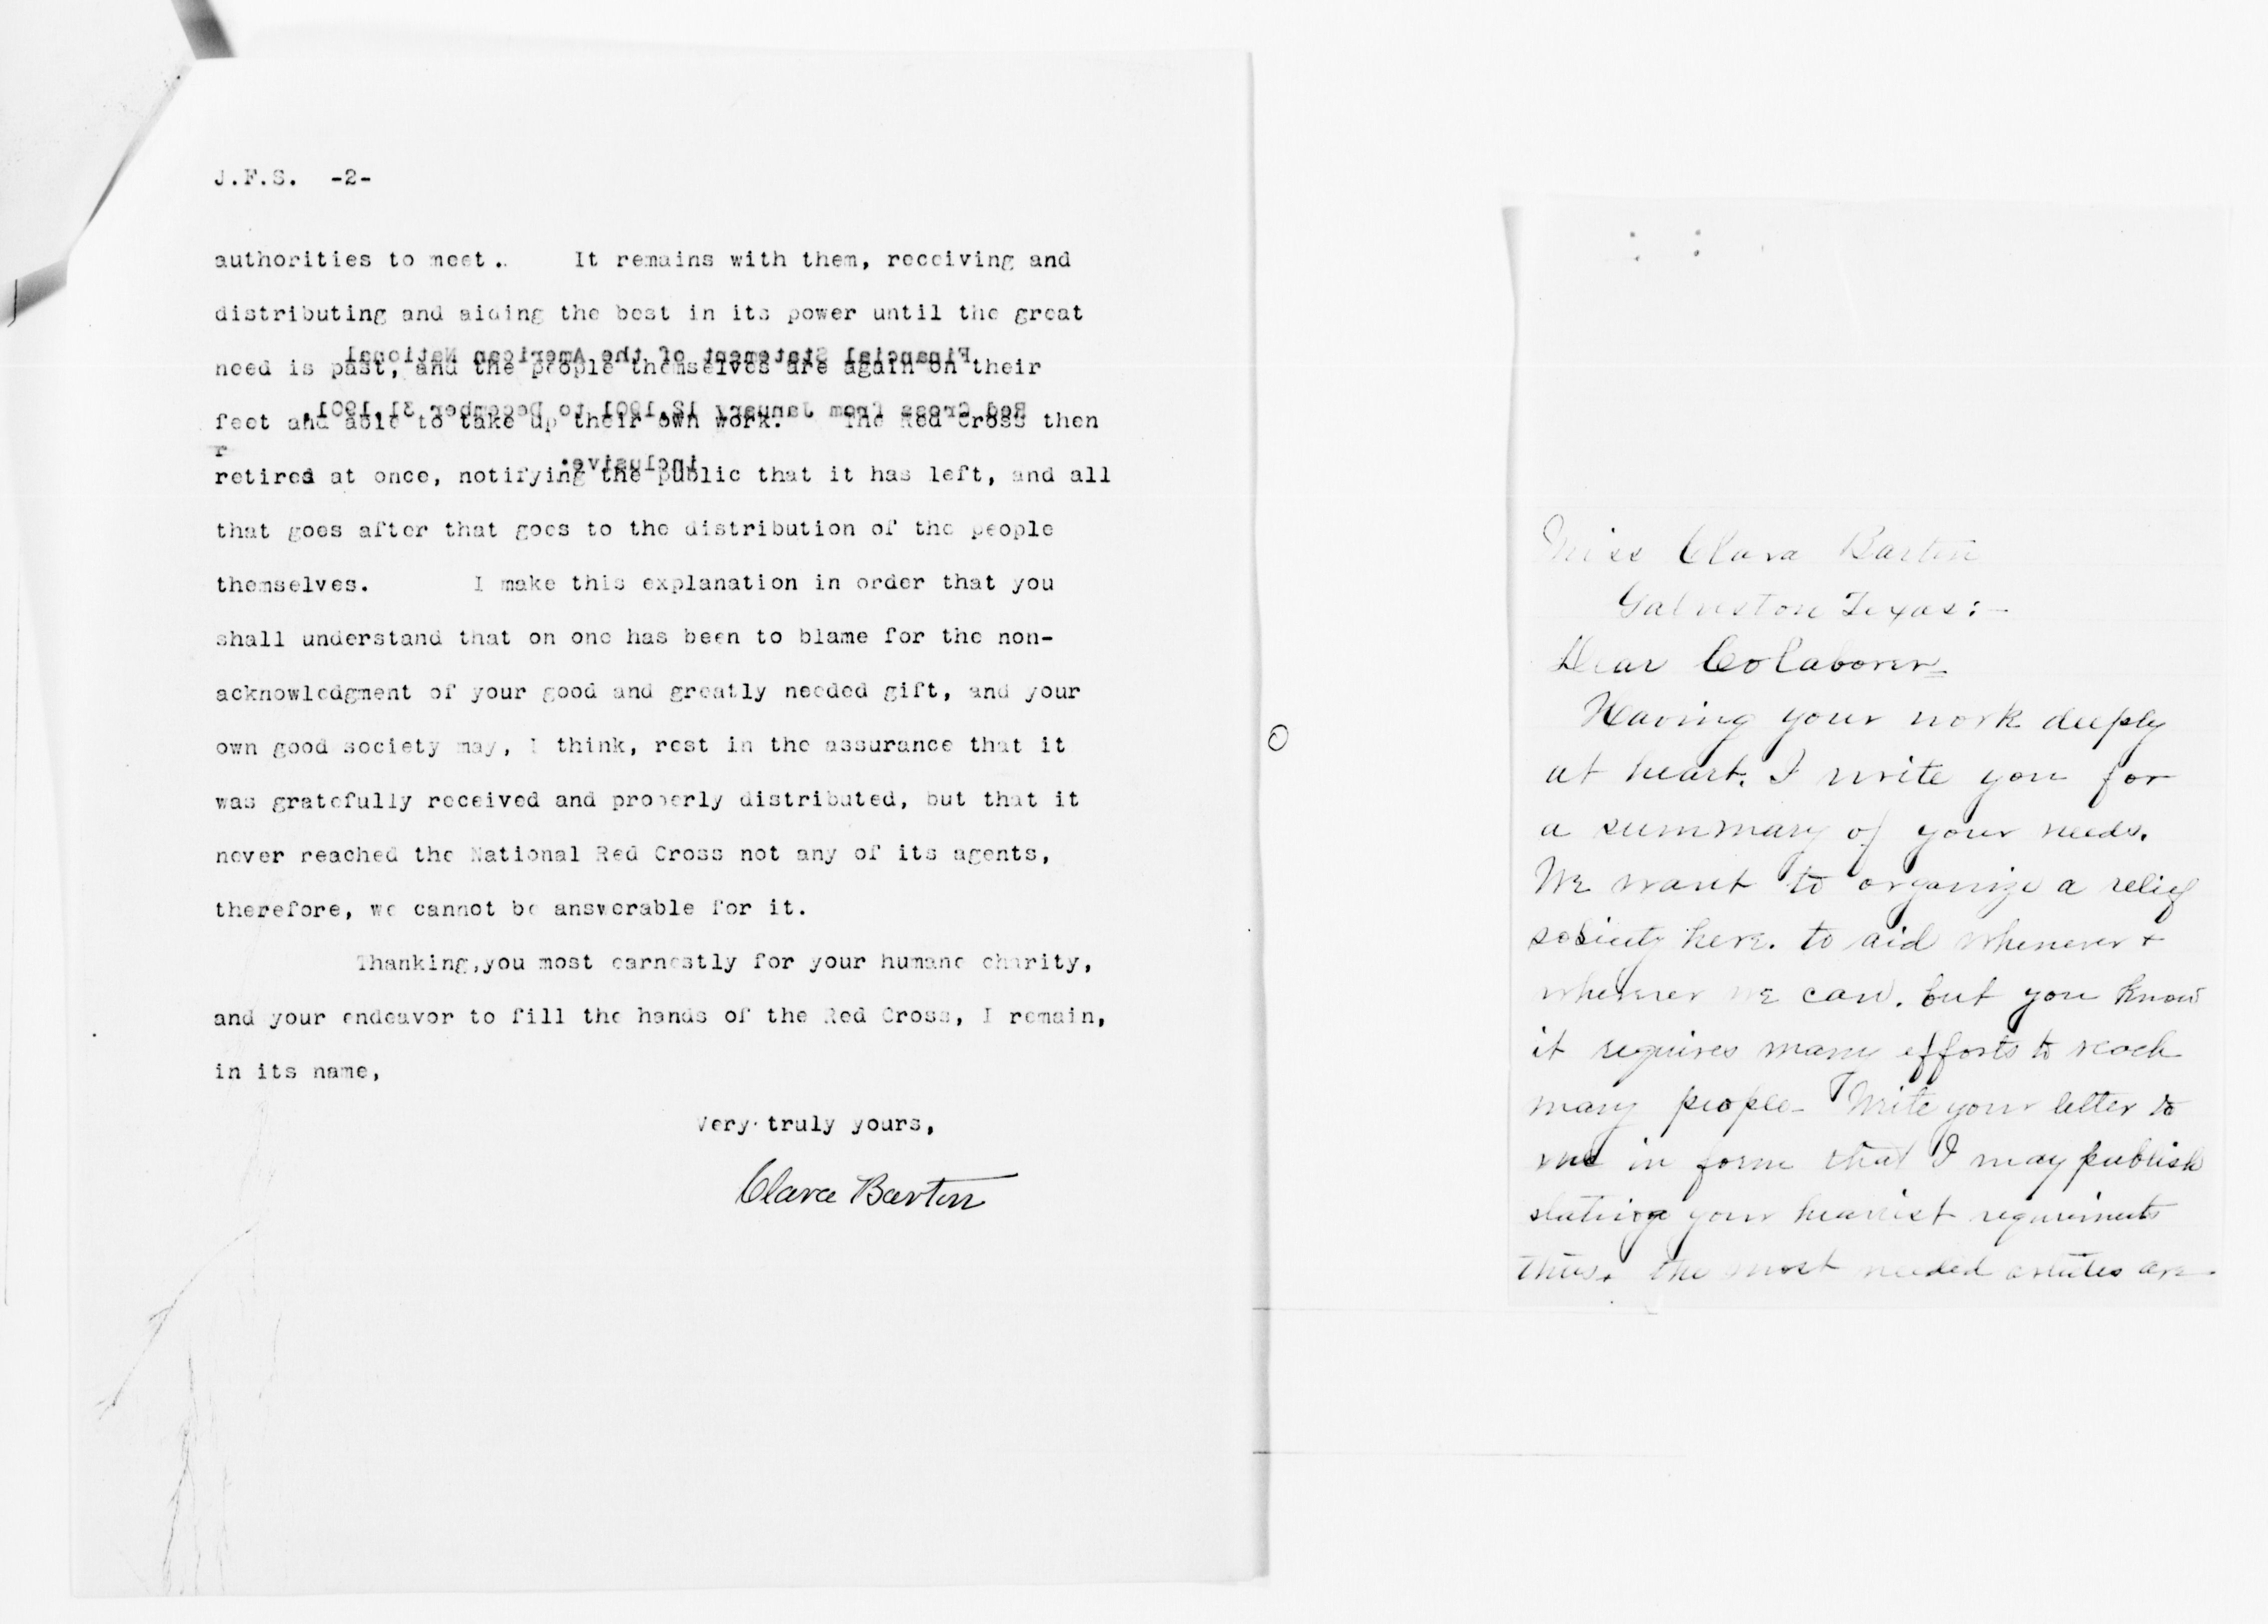 J.F.S. -2-
authorities to meet. It remains with them, receiving and
distributing and aiding the best in its power until the great
need is past, and the people themselves are again on their
feet and able to take up their own work. The Red Cross then
r
retires at once, notifying the public that it has left, and all
that goes after that goes to the distribution of the people
themselves. I make this explanation in order that you
shall understand that on one has been to blame for the non-
acknowledgment of your good and greatly needed gift, and your
own good society may, I think, rest in the assurance that it
was gratefully received and properly distributed, but that it
never reached the National Red Cross not any of its agents,
therefore, we cannot be answerable for it.
Thanking,you most earnestly for your humane charity,
and your endeavor to fill the hands of the Red Cross, I remain,
in its name,
Very truly yours,
Clara Barton
Financial Statement of the American National
Red Cross from January 12,1901 to December 31,1901,
inclusive.
Miss Clara Barton
Galveston Texas:-
Dear Colaborer
Having your work deeply
at heart. I write you for
a summary of your needs.
We want to organize a relief
society here. to aid whenever +
wherever we can. but you know
it requires many efforts to reach
many people- Write your letter to
me in form that I may publish
stating your heaviest requirements
thus. the most needed articles are